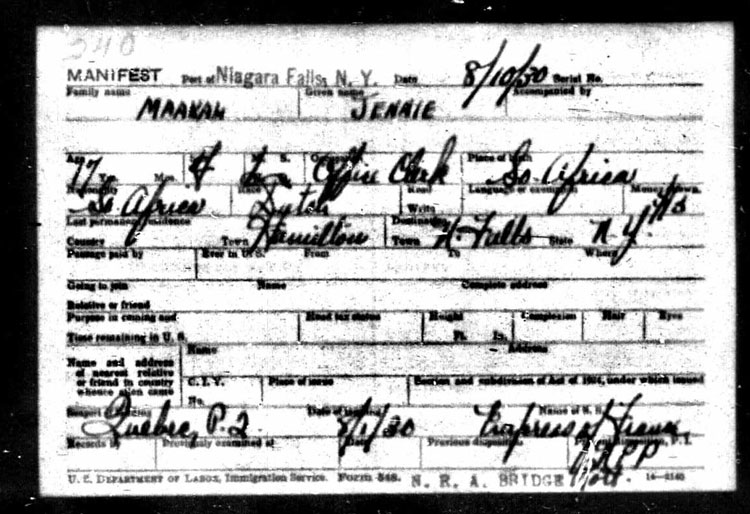 340
MANIFEST Port of Niagara Falls, N. Y. Date 8/10/30 Serial No.
Family name Given name Accompanied by
MAAKAL JENNIE
Age S. Occupation Place of birth
17 Yrs. Mos. F Office Clerk So. Africa
Nationality Race Read Language or exemption Money shown
So. Africa Dutch Write
Last permanent residence Destination
Country Town Hamilton Town N. Falls State N. Y.
Passage paid by Ever in U.S. From To Where
Going to join Name Complete address
Relative or friend
Purpose in coming and Head tax status Height Complexion Hair Eyes
Time remaining in U. S. Ft. In.
Name and address of nearest relative or friend in country whence alien came Name Address
C. I. V. No. Place of issue Section and subdivision of Act of 1924, under which issued
Seaport of landing Date of landing Name of S. S.
Quebec, P. Q. 8/1/30 Empress of France
Records by Previously examined at Date Previous disposition Present disposition, P. I.
U. S. DEPARTMENT OF LABOR, Immigration Service. Form 548. N. R. A. BRIDGE 14—2140